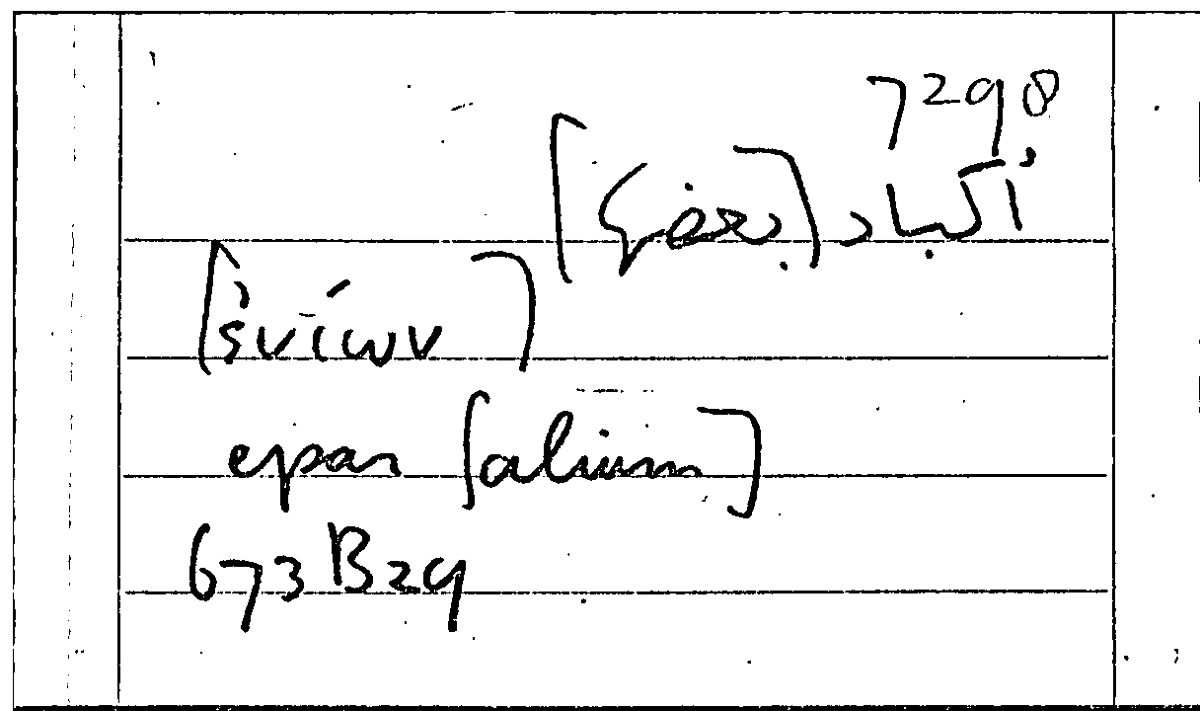 7298
أكباد [بعض]
[ἐνίων]
epar [alium]
673B29